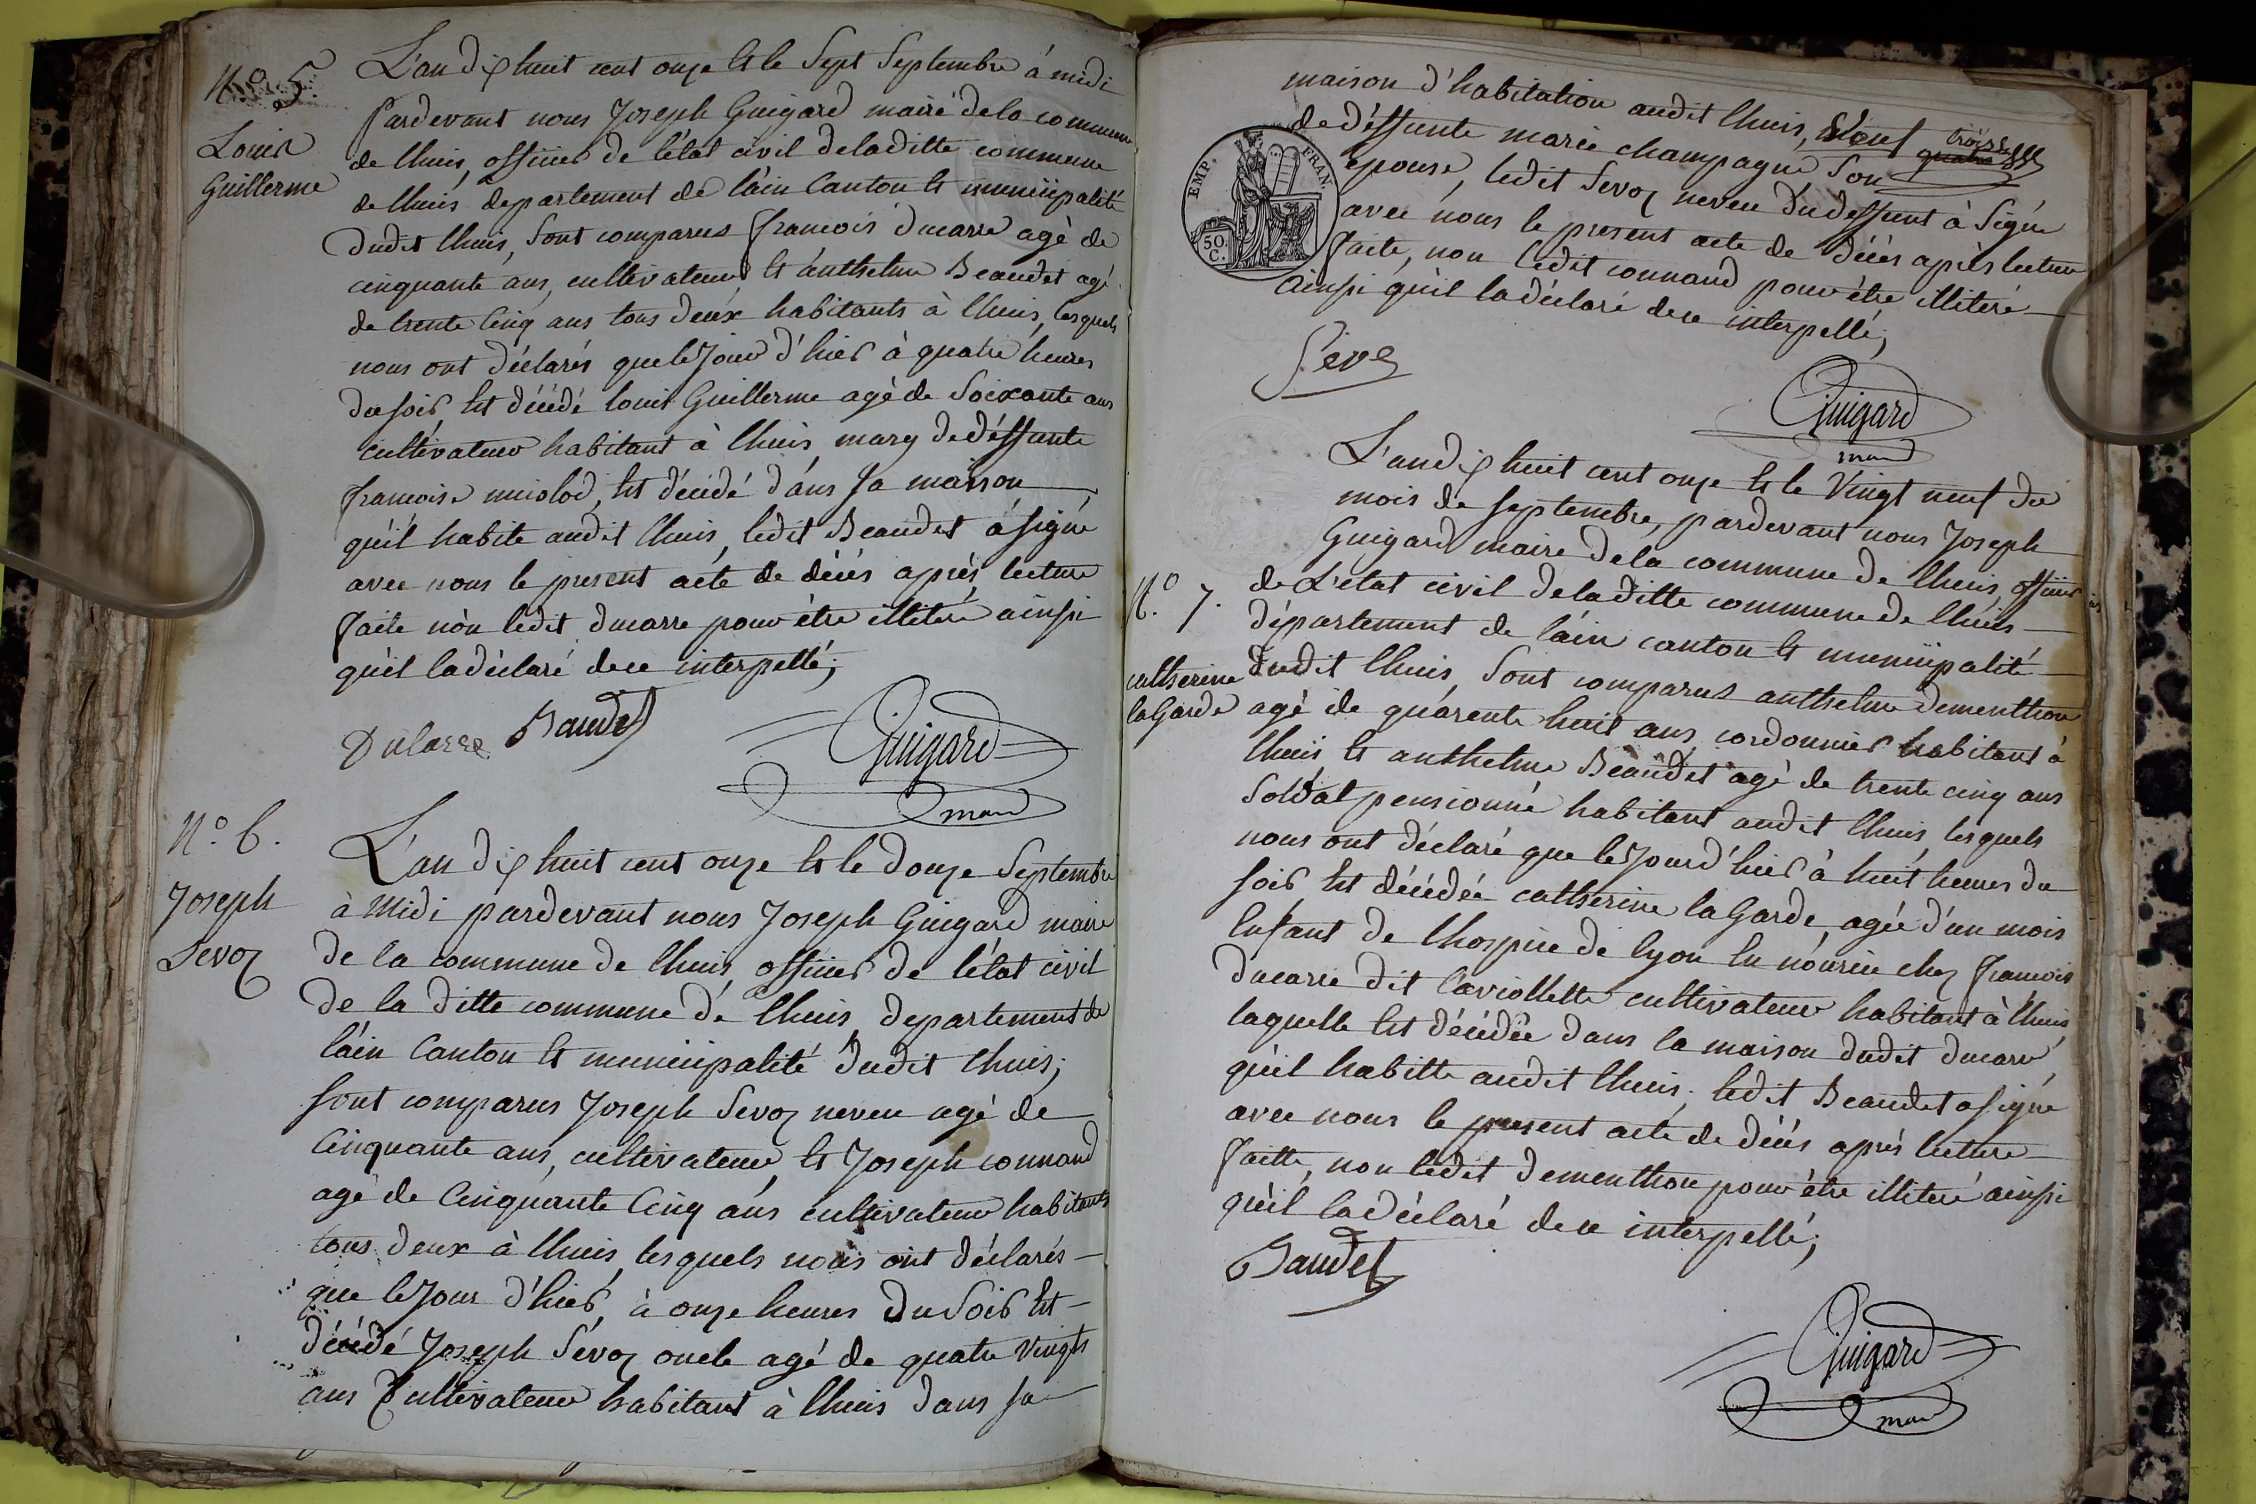 N.o 5.
Louis
Guillerme
L'an dix huit cent onze et le Sept Septembre à midi
pardevant nous Joseph Guigard maire de la commune
de lhuis, officier de l'état civil de laditte commune
de lhuis departement de l'ain Canton et municipalité
dudit lhuis, Sont comparus francois ducarre agé de
cinquante ans, cultivateur et anthelme Beaudet agé
de trente Cinq ans tous deux habitants à lhuis, lesquels
nous ont déclarés que le Jour d'hier à quatre heures
du soir est décédé louis Guillerme agé de Soixante ans
cultivateur habitant à lhuis, mary de déffunte
francoise miolod, est décédé dans sa maison
qu'il habite audit lhuis, ledit Beaudet a signé
avec nous le present acte de décés aprés lecture
faite non ledit ducarre pour être illiteré ainsi
qu'il la déclaré de ce interpellé;
Ducarre Baudet
Guigard
maire
N.o 6.
Joseph
Sevoz
L'an dix huit cent onze et le douze Septembre
à Midi pardevant nous Joseph Guigard maire
de la commune de lhuis, officier de l'état civil
de la ditte commune de lhuis, departement de
l'ain Canton et municipalité dudit lhuis;
sont comparus Joseph Sevoz neveu agé de
Cinquante ans, cultivateur, et Joseph connand
agé de Cinquante Cinq ans cultivateur habitants
tous deux à lhuis, lesquels nous ont déclarés
que le Jour d'hier, à onze heures du Soir est
décédé Joseph Sévoz oncle agé de quatre vingts
ans Cultivateur habitant à lhuis dans sa
maison d'habitation audit lhuis, Veuf trois
quatre
de déffunte marie champagne Son
epouse, ledit Sevoz neveu du deffunt à Signé
avec nous le present acte de décés aprés lecture
faite, non ledit connand pour être illiteré
ainsi qu'il la déclaré de ce interpellé;
EMP. FRAN.
50.
C.
Sevoz
Guigard
maire
N.o 7.
catherine
la Garde
L'an dix huit cent onze et le vingt neuf du
mois de septembre, pardevant nous Joseph
Guigard maire de la commune de lhuis, officier
de L'état civil de laditte commune de lhuis
département de l'ain canton et municipalité
dudit lhuis, Sont comparus anthelme dementhon
agé de quarente huit ans, cordonnier habitant à
lhuis, et anthelme Beaudet agé de trente cinq ans
Soldat pensionné habitant audit lhuis, lesquels
nous ont déclaré que le Jour d'hier à huit heures du
soir est décédée catherine la Garde, agée d'un mois
Enfant de lhospice de lyon en nourice chez francois
ducarre dit Caviollette cultivateur habitant à lhuis,
laquelle est décédée dans la maison dudit ducarre,
qu'il habitte audit lhuis; ledit Beaudet a signé
avec nous le present acte de décés aprés lecture
faitte, non ledit dementhon pour être illiteré ainsi
qu'il la déclaré de ce interpellé;
Baudet
Guigard
maire